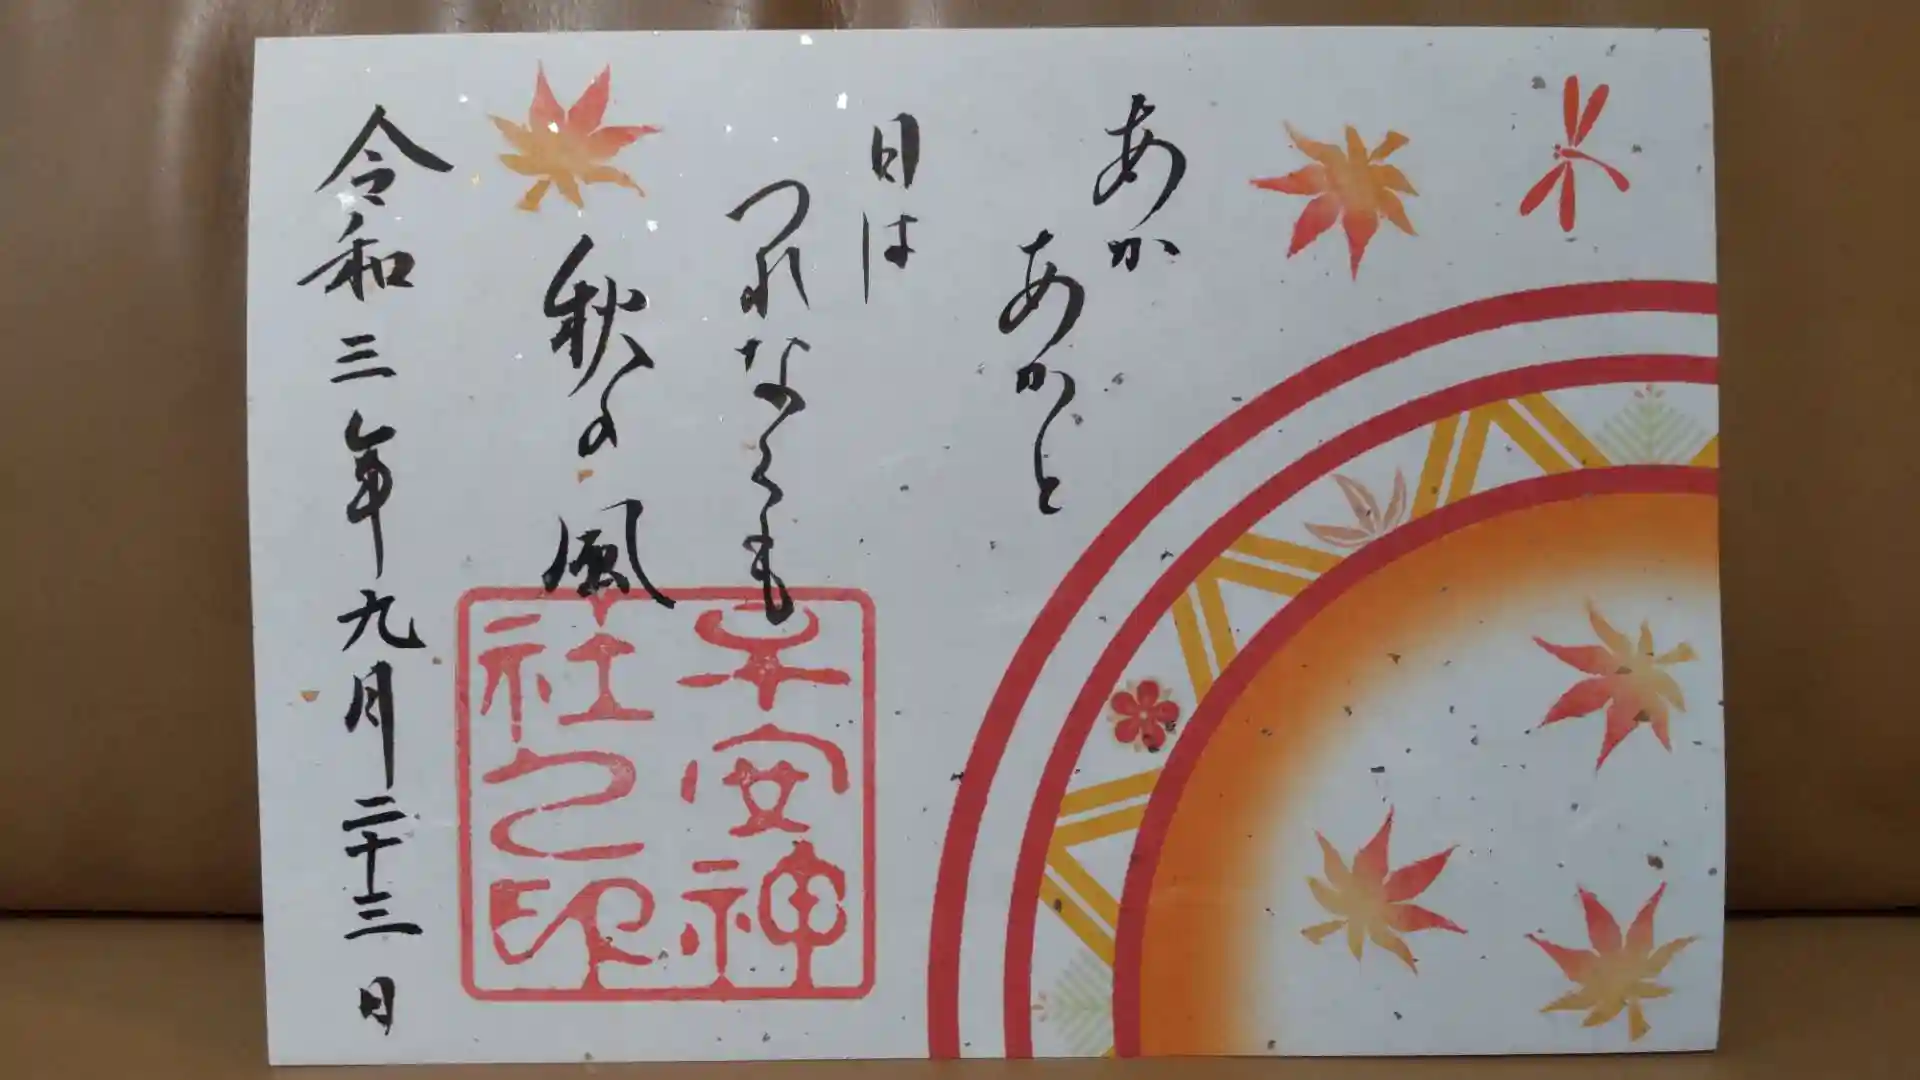 あか
あかと
日は
つれなくも
秋の風
子安神
社之印
令和三年九月二十三日